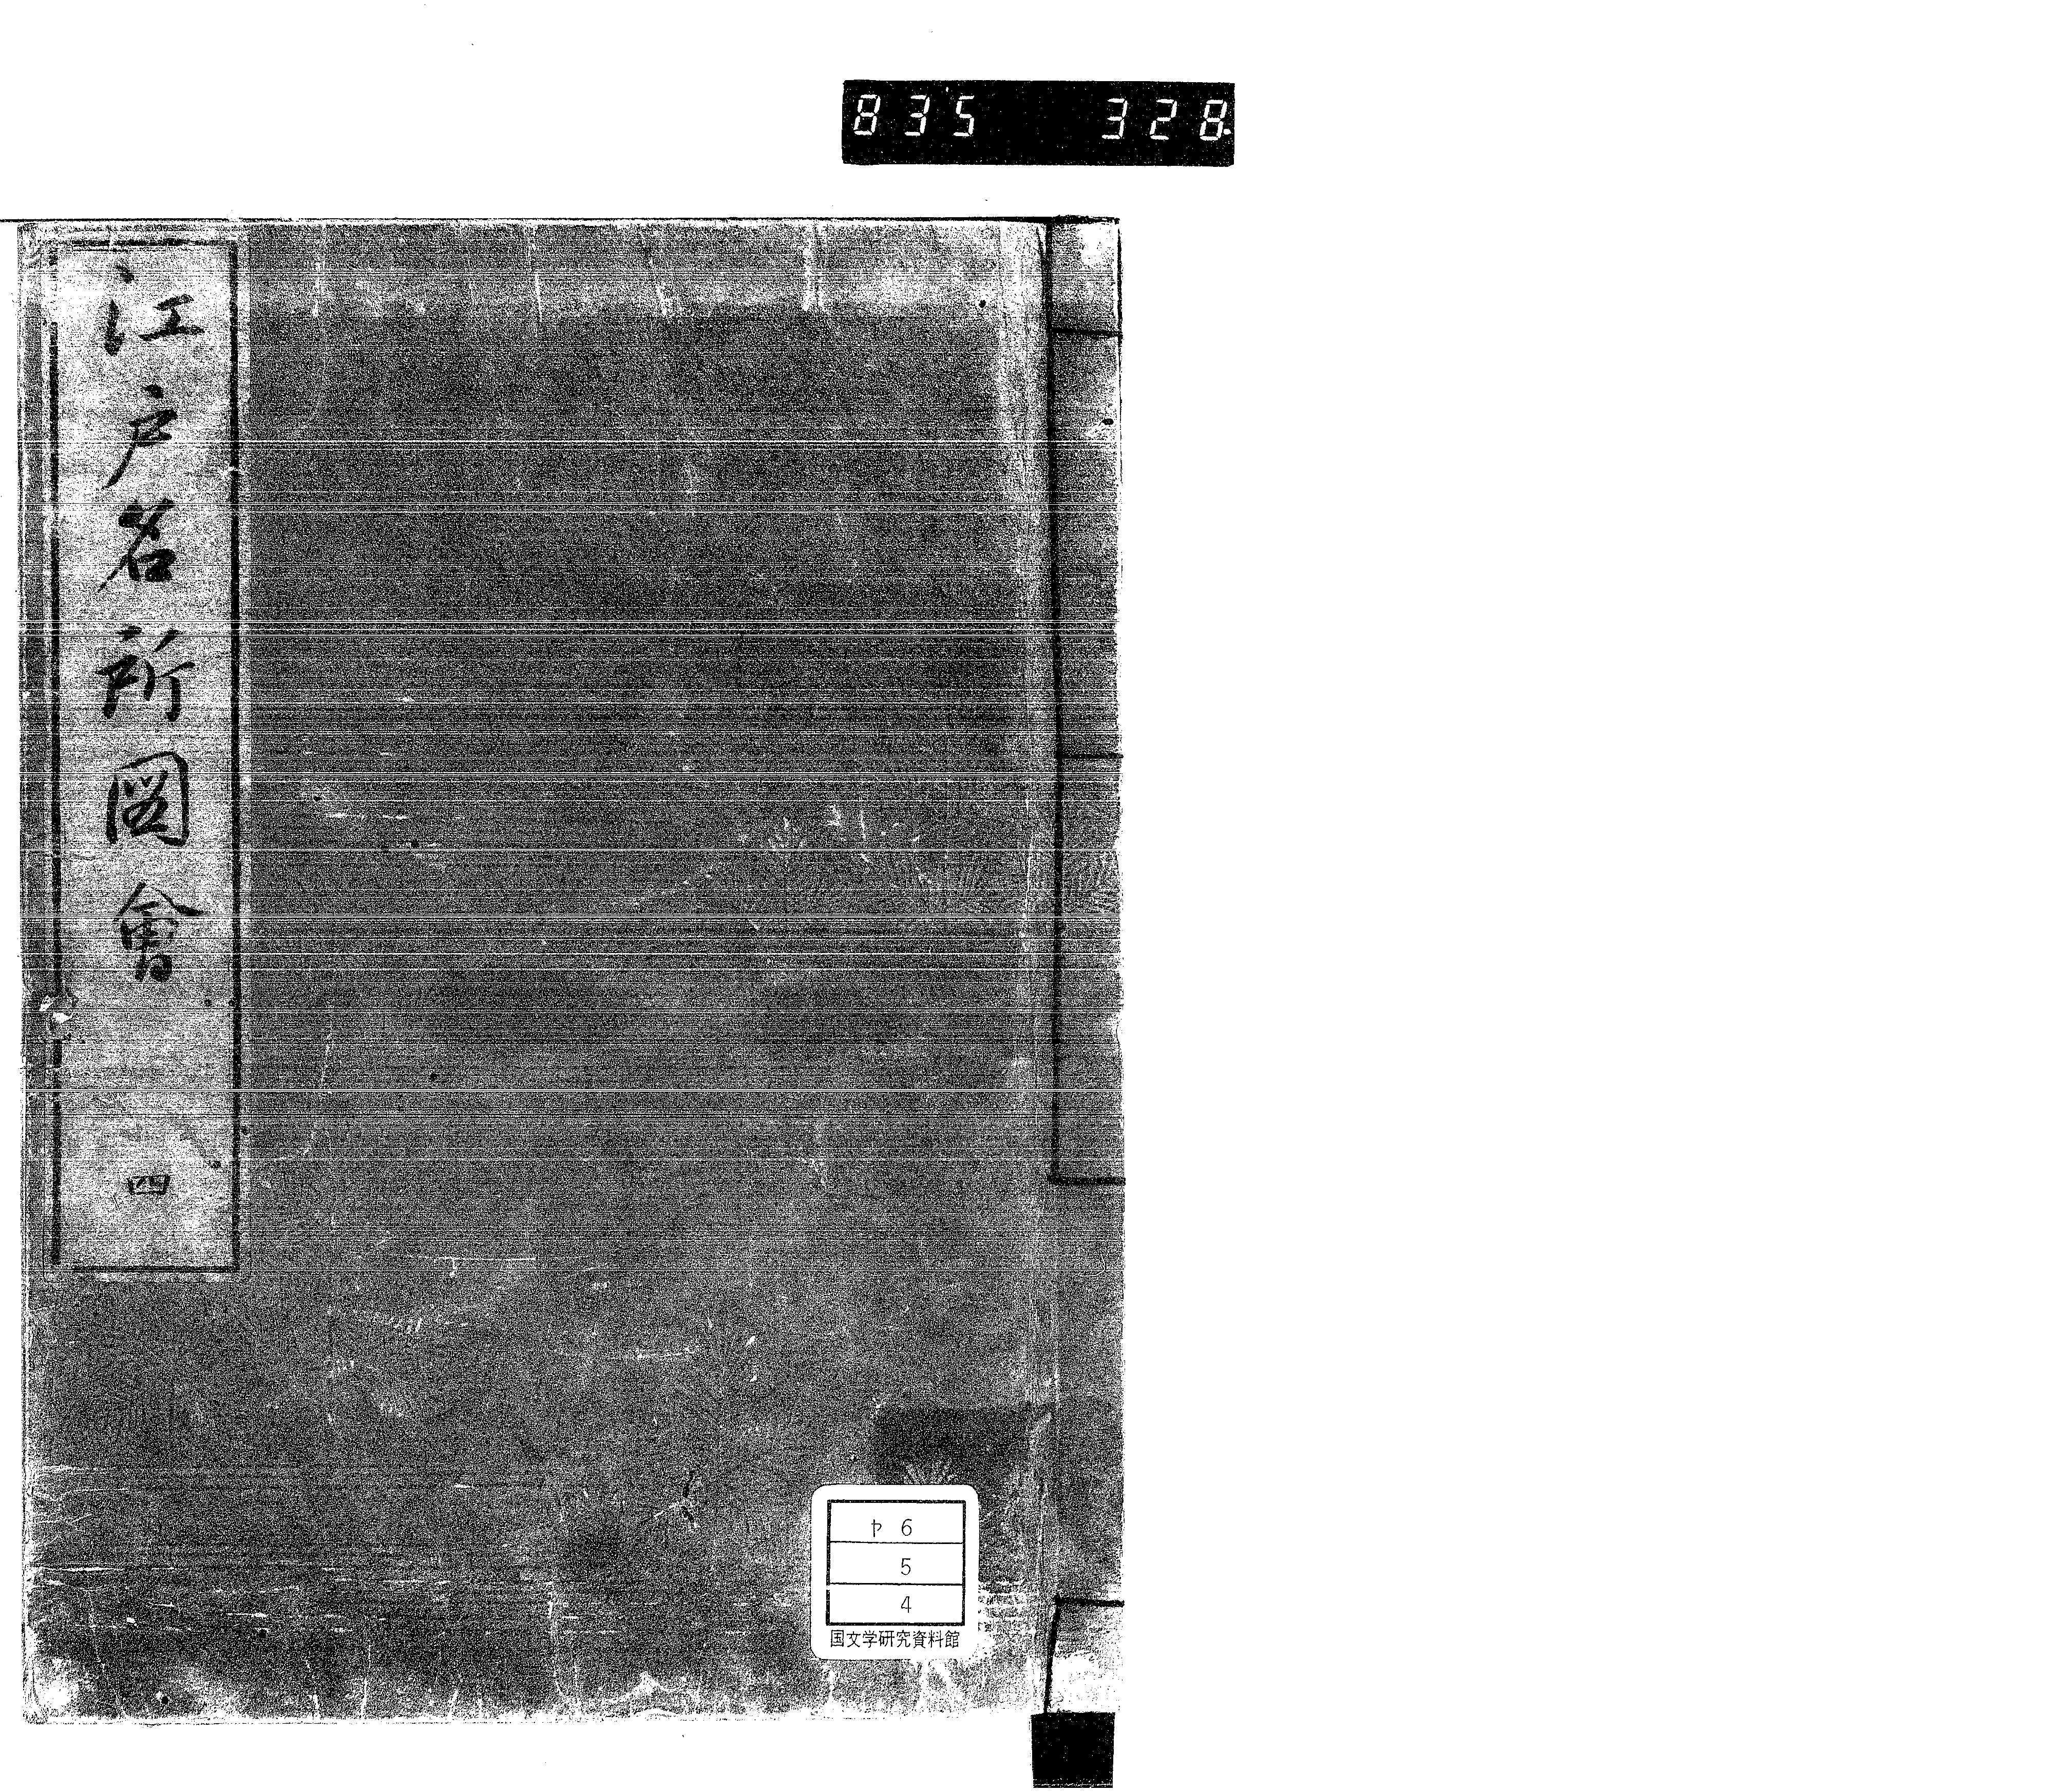 835 328
江戸名所圖會
四
ヤ 6
5
4
国文学研究資料館